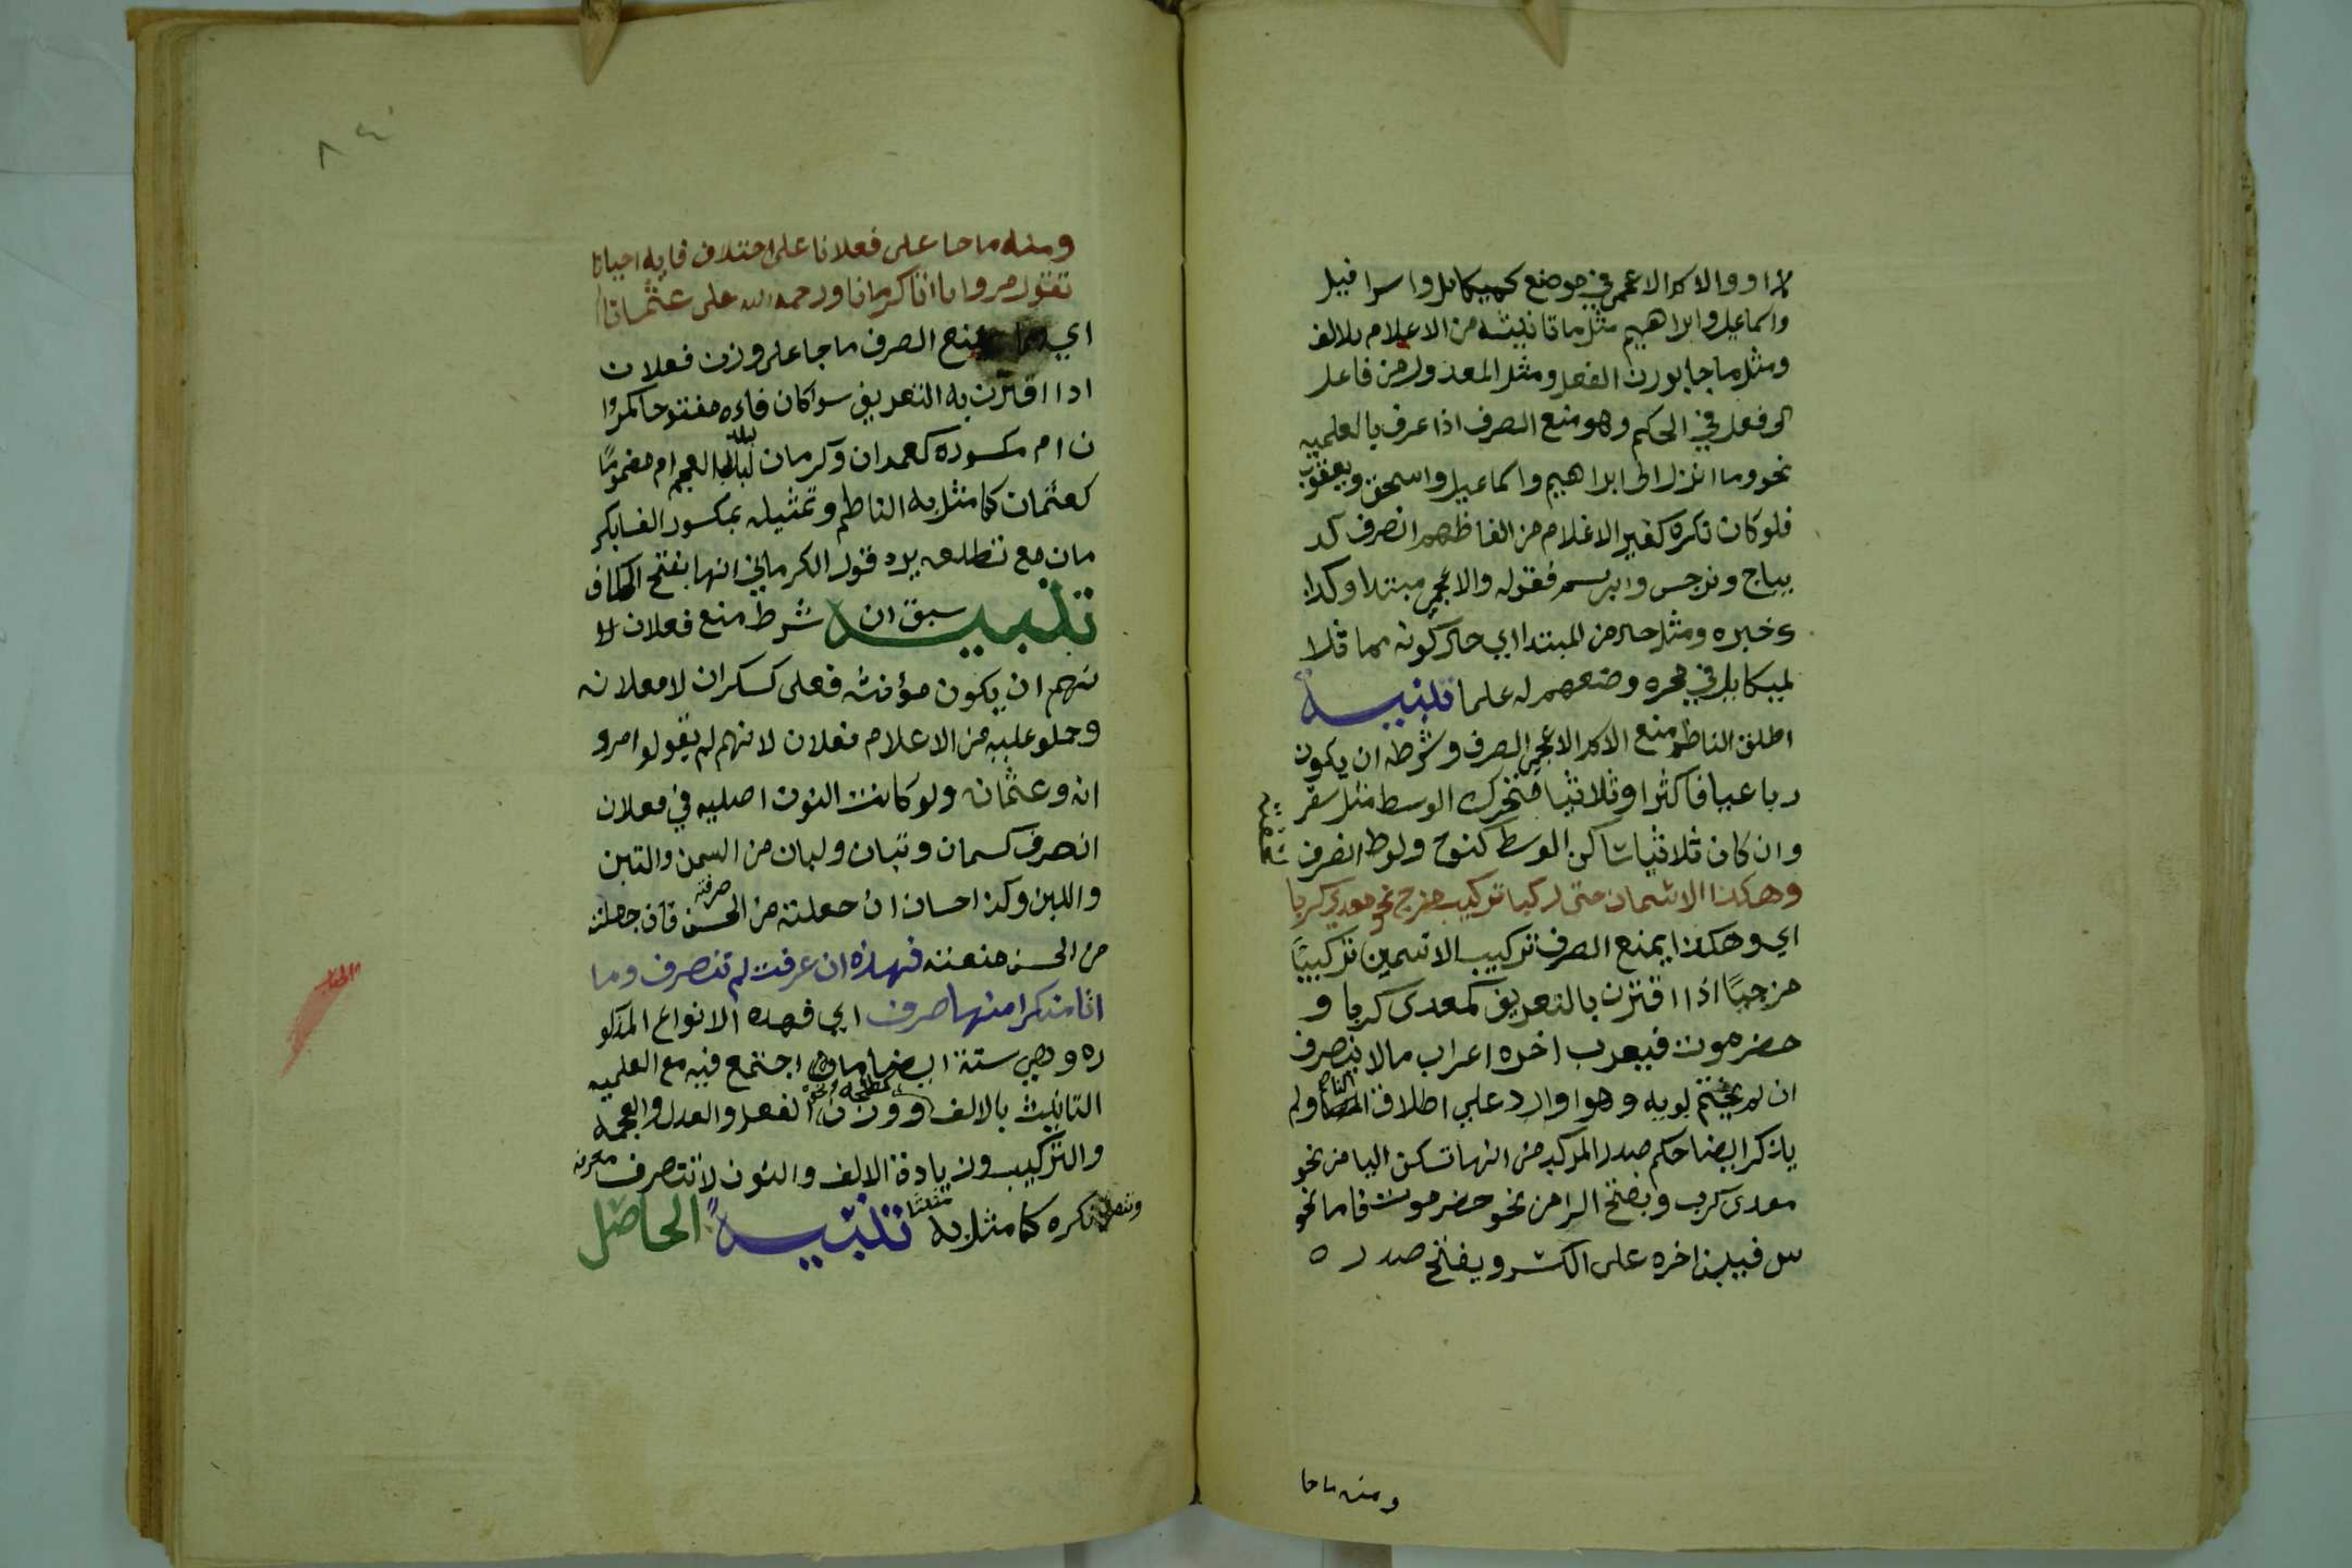 لا او والاسم الاعجمي في موضع كميكايل واسرافيل
واسماعيل وابراهيم مثل ما تانيثه من الاعلام بلا الف
ومثل ما جا بوزن الفعل ومثل المعدول من فاعل
الى فعل في الحكم وهو منع الصرف اذا عرف بالعلميه
نحو وما انزل الى ابراهيم واسماعيل واسحق ويعقوب
فلو كان نكره كغير الاعلام من الفاظهم انصرف كد
يباج ونرجس وابريسم فقوله والاعجمي مبتدا وكذا
خبره ومثل حال من المبتدا اي حال كونه مماثلا
لميكايل في وضعهم له علما تنبيه
اطلق الناظم منع الاسم الاعجمي الصرف وشرطه ان يكون
رباعيا فاكثر او ثلاثيا متحرك الوسط مثل سقر
وان كان ثلاثيا ساكن الوسط كنوح ولوط انصرف
وهكذا الاسمان حتى ركبا تركيب مزج نحو معدي كربا
اي وهكذا يمنع الصرف تركيب الاسمين تركيبًا
مزجيًا اذا اقترن بالتعريف كمعدى كربا و
حضرموت فيعرب اخره اعراب مالا ينصرف
ان لم يختم بويه وهو وارد علي اطلاق الناظم ولم
يذكر ايضا حكم صدر المركب من انها تسكن اليا من نحو
معدى كرب وبفتح الرا من نحو حضرموت فاما نحو
س فيبنا اخره على الكسر ويفتح صدره
ومنه ما جا
ومنه ما جا على فعلانا على اختلاف فايه احيانا
تقول مروانا اتا كرمانا ورحمه الله على عثمانا
اي يمنع الصرف ما جا على وزن فعلان
اذا اقترن به التعريف سوا كان فاءه مفتوحا كمروا
ن ام مكسوره كعمدان وكرمان لبلد العجم ام مضمومًا
كعثمان كما مثل به الناظم وتمثيله بمكسور الفا بكر
مان مع تطلعه يرده قول الكرماني انها بفتح الكاف
تنبيه سبق ان شرط منع فعلان لا
نهم ان يكون مؤنثه فعلى كسكران لا فعلانه
وحملو عليه من الاعلام فعلان لانهم لم يقولوا مرو
انه وعثمانه ولو كانت النون اصليه في فعلان
انصرف كسمان وتبان ولبان من السمن والتبن
واللبن وكذا حسان ان جعلته من الحسن صرفته فان جعلته
من الحس منعته فهذه ان عرفت لم تنصرف وما
اتا منكرا منها صرف اي فهذه الانواع المذكو
ره وهي ستة ايضا اجتمع فيه مع العلميه
التانيث بالالف ووزن الفعل والعدل والعجمه
والتركيب وزيادة الالف والنون لا تنصرف معرفه
وتنصرف نكره كما مثل به تنبيهً الحاصل